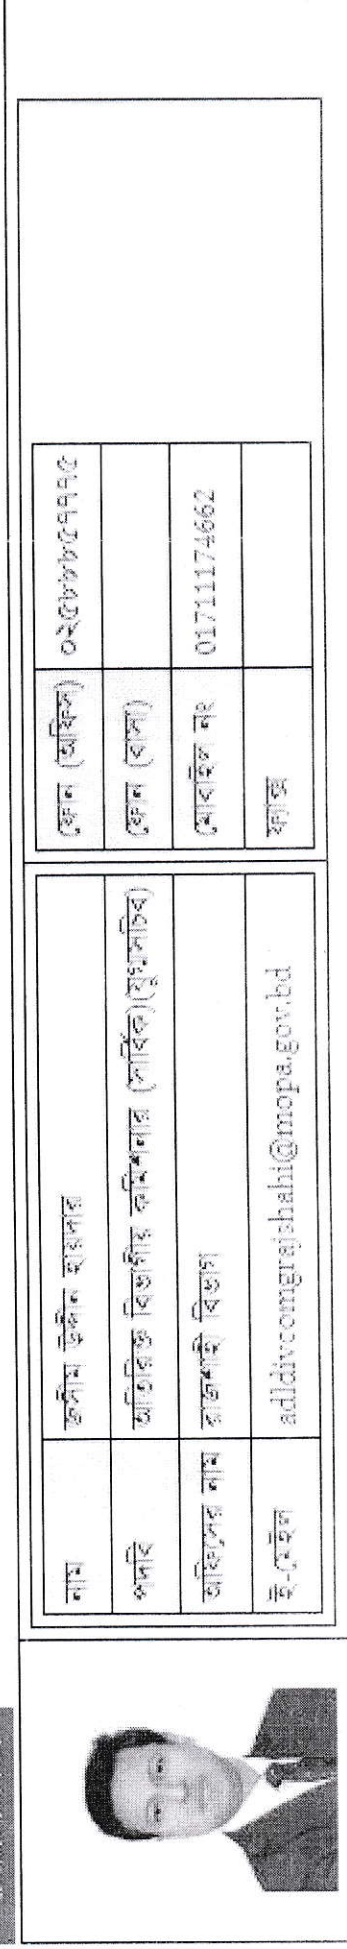 নাম জসীম উদ্দীন হায়দার
পদবি অতিরিক্ত বিভাগীয় কমিশনার (সার্বিক)(যুগ্মসচিব)
অফিসের নাম রাজশাহী বিভাগ
ই-মেইল adldivcomgrajshahi@mopa.gov.bd
ফোন (অফিস) ০২৫৮৮৮৫৭৭৭৫
ফোন (বাসা)
মোবাইল নং 01711174662
ফ্যাক্স